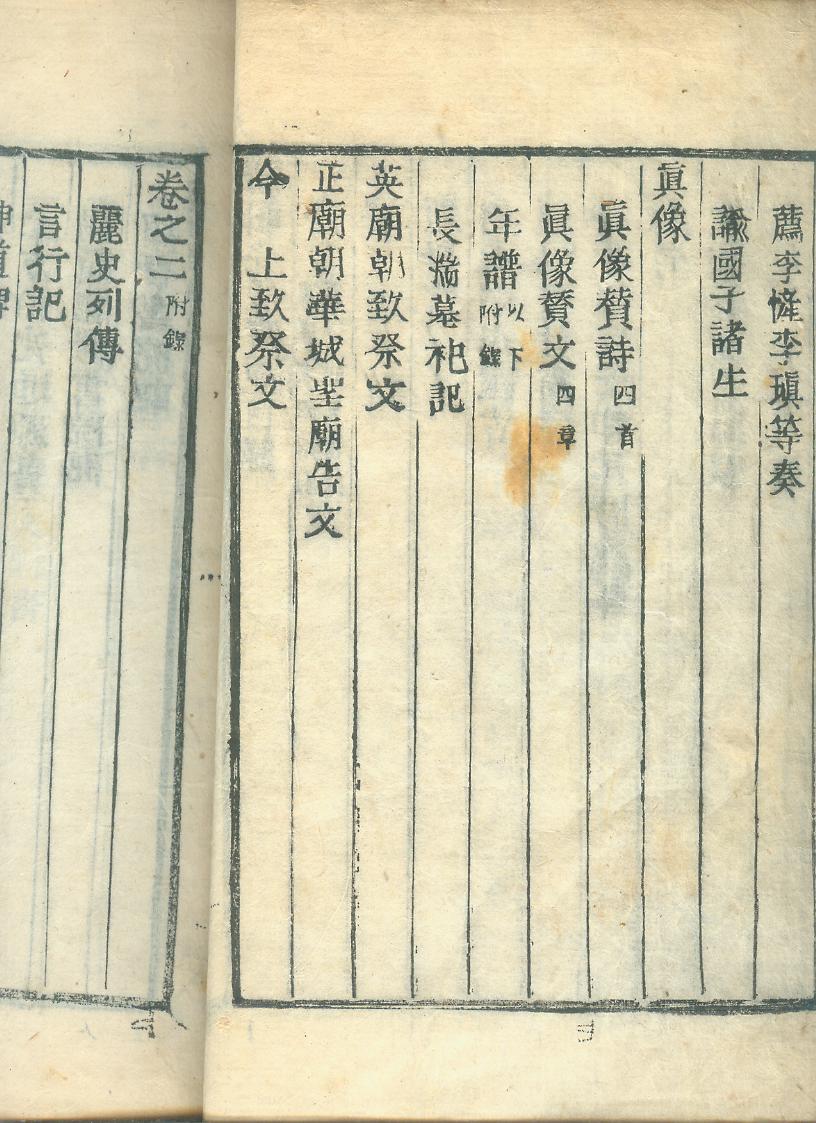 薦李㦃李瑱等奏
諭國子諸生
眞像
眞像賛詩 四首
眞像賛文 四章
年譜 以下附錄
長湍墓祀記
英廟朝致祭文
正廟朝華城聖廟告文
今 上致祭文
卷之二 附錄
麗史列傳
言行記
神道碑